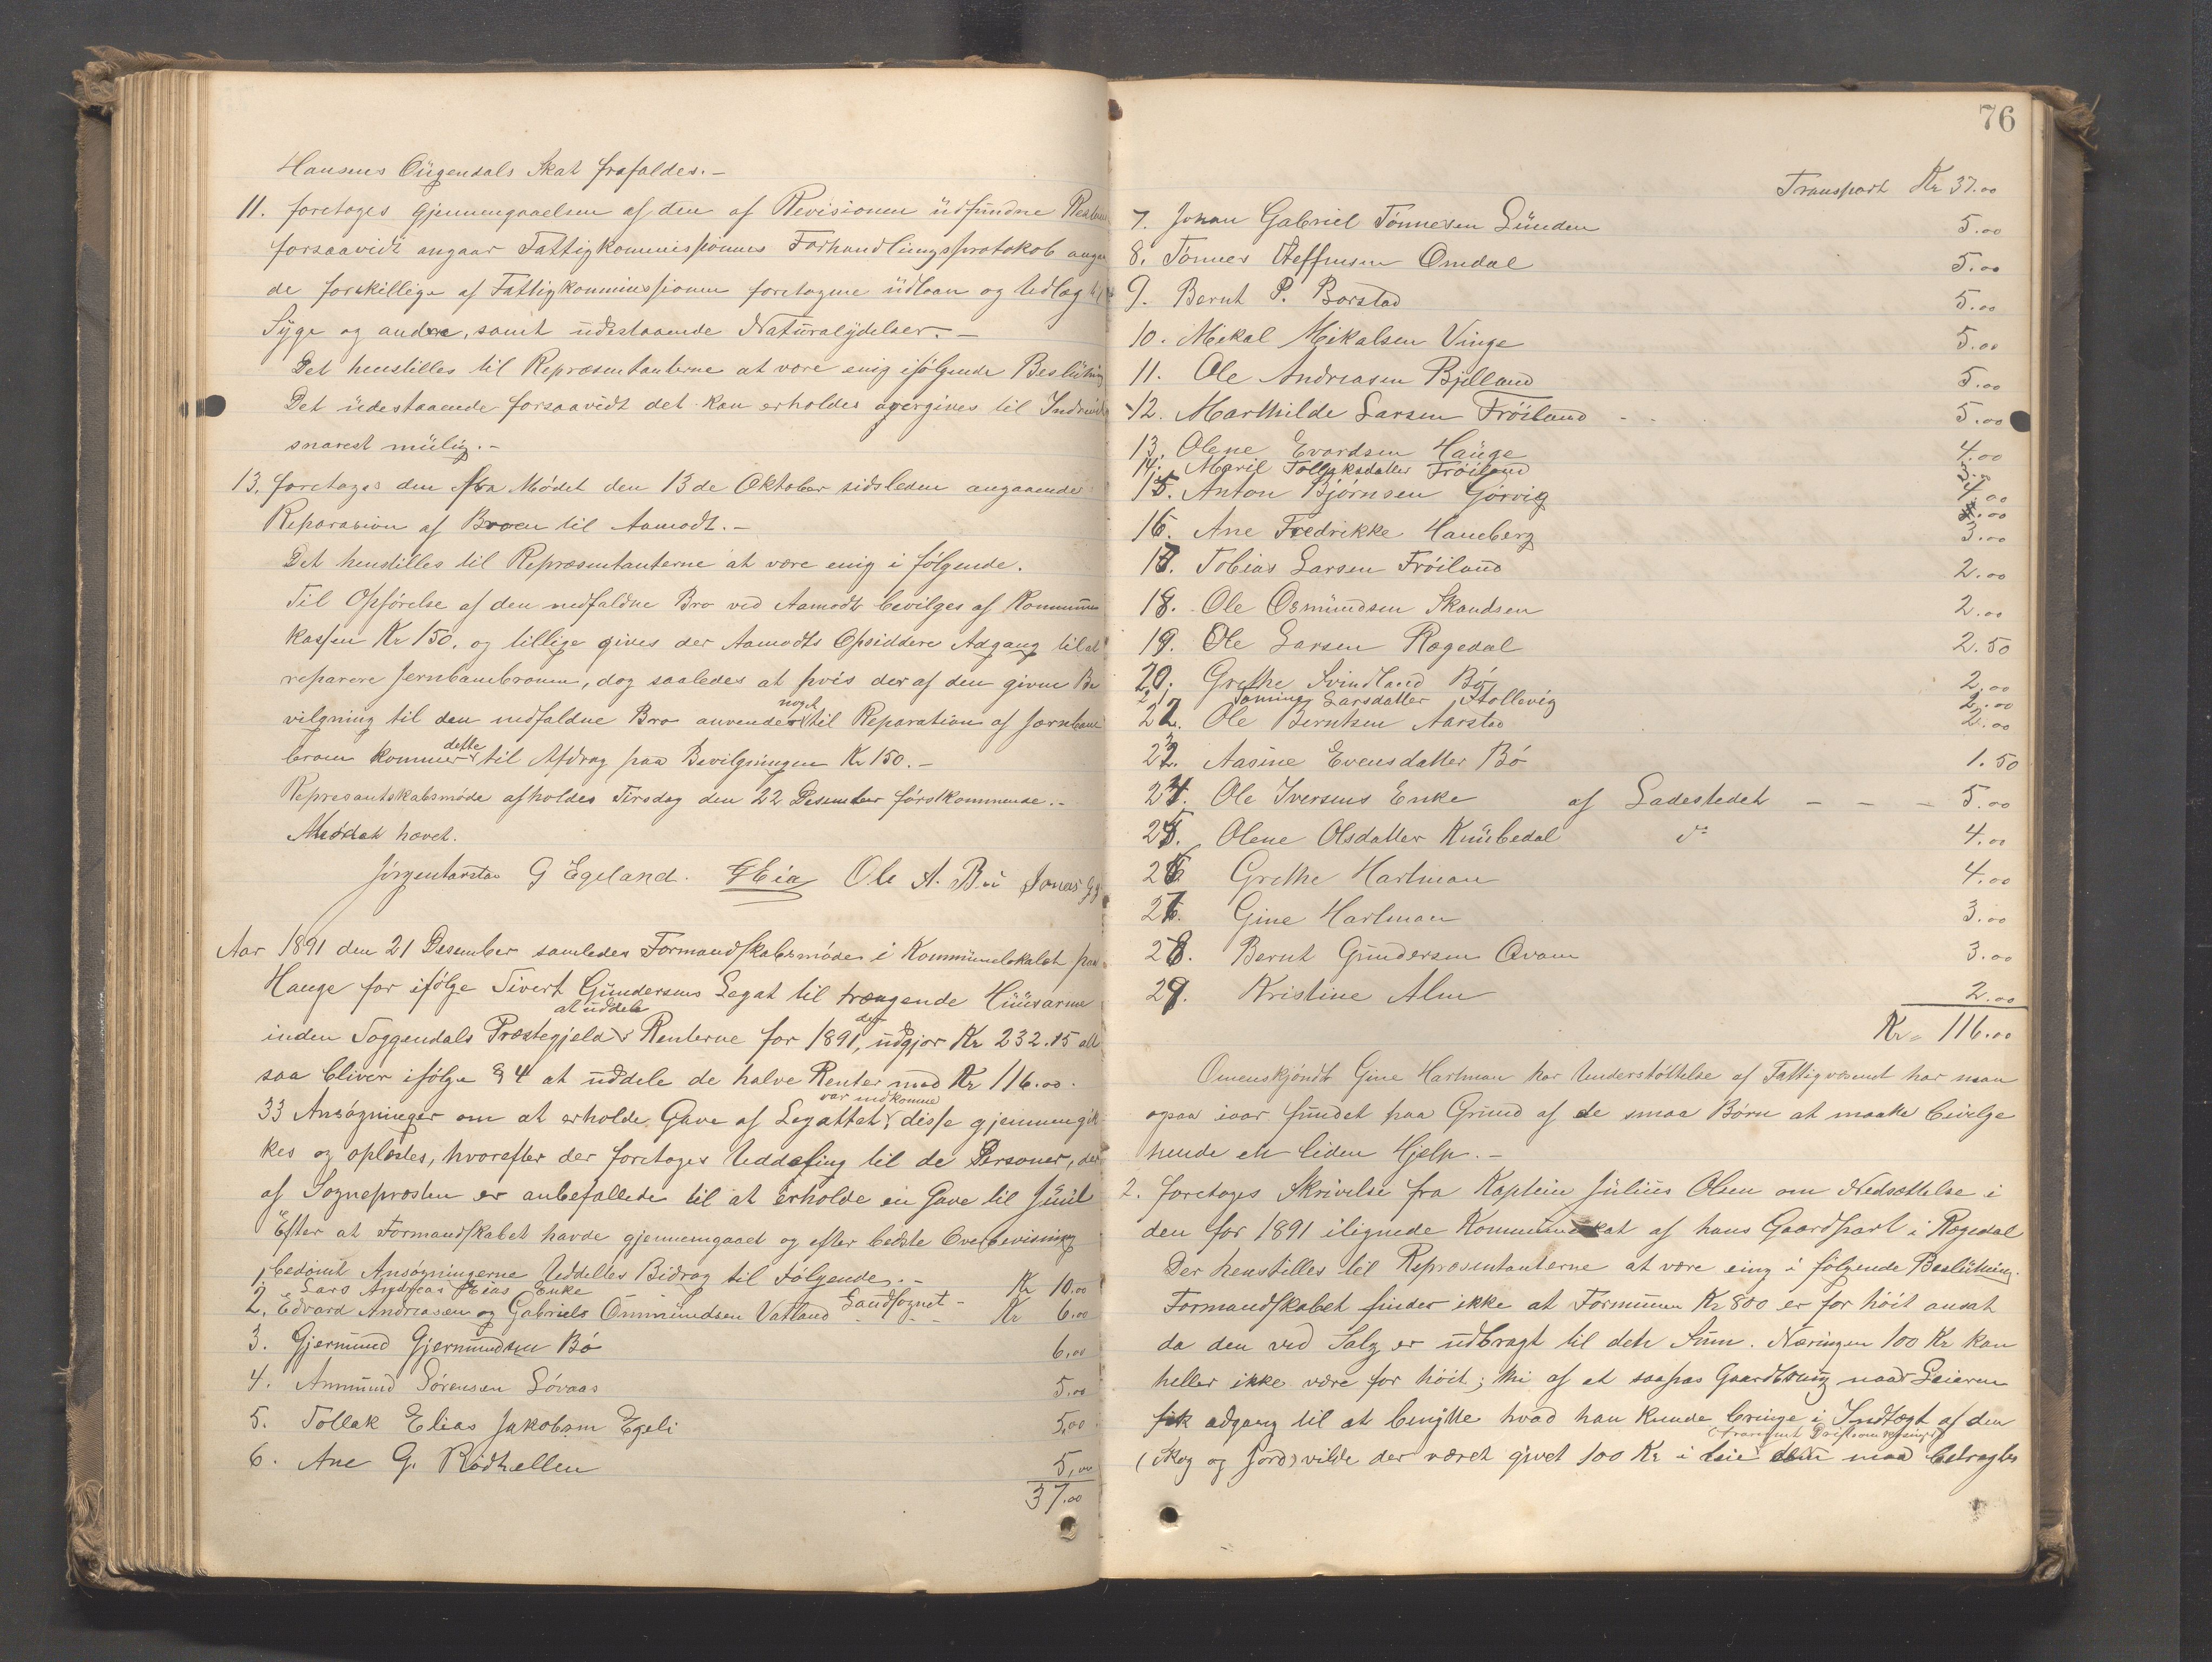 Hansens Øügendals Skat frafaldes. –
11. foretages Gjennemgaaelsen af den af Revisionen üdfündne
forsaavidt angaar Fattigkommissionens Forhandlingsprotokol
de forskillige af Fattigkommissionen foretagne üdlaan og Udlæg
Syge og andre, samt üdestaaende Natüralydelser. –
Det henstilles til Repræsentanterne at være enig i følgende Beslütning
Det üdestaaende forsaavidt det kan erholdes overgives til
snarest mülig. –
13. foretages den fra Mødet den 13de Oktober sidsleden angaaende
Reparasion af Broen til Aamodt. –
Det henstilles til Repræsentanterne at være enig i følgende.
Til Opførelse af den nedfaldne Bro ved Aamodt bevilges af Kommune
kassen Kr 150. og tillige gives der Aamodts Opsiddere Adgang til at
reparere Jernbanebroen, dog saaledes at hvis der af den givne Be
vilgning til den nedfaldne Bro anvendes noget til Reparation af Jernbane
broen kommer dette til Afdrag paa Bevilgningen Kr 150. –
Represantskabsmøde afholdes Tirsdag den 22 Desember førstkommende. –
Mødet hævet.
Jørgen Aarstad G Egeland. Ole A. Bø Jonas
Aar 1891 den 21 Desember samledes Formandskabsmøde i Kommünelokalet paa
Hauge for ifølge Sivert Gündersens Legat til trængende Hüüsarme
inden Soggendals Præstegjeld at uddele Renterne for 1891, der üdgjør Kr 232.15 alt
saa bliver ifølge § 4 at üddele de halve Renter med Kr 116.00.
33 Ansøgninger om at erholde Gave af Legattet var indkomne disse gjennemgik
kes og oplæstes, hvorefter der foretoges Uddeling til de Personer, der
af Sognepræsten er anbefallede til at erholde en Gave til Jüül
Efter at Formandskabet havde gjennemgaaet og efter bedste Overbevisning
bedømt Ansøgningerne Uddeltes Bidrag til Følgende. –
1. Lars Andreas Eias Enke Kr 10.00
2. Edvard Andreasen og Gabriels Ommündsen Vatland Landsognet – Kr 6.00
3. Gjermünd Gjermündsen Bø 6,00
4. Ammünd Sørensen Løvaas 5.00
5. Tollak Elias Jakobsen Egeli 5,00
6. Ane G. Rødhellen 5,00
37.00
76
Transport Kr 37.00
7. Johan Gabriel Tønnesen Lünden 5.00
8. Tønnes Steffensen Omdal 5.00
9. Bernt P. Barstad 5.00
10. Mikal Mikalsen Vinge 5.00
11. Ole Andreasen Bjelland 5.00
12. Marthilde Larsen Frøiland 5.00
13. Olene Evardsen Haüge 4.00
14. Maril Tollaksdatter Frøiland 3.00
15. Anton Bjørnsen Gørvig 4.00
16. Ane Fredrikke Haneberg 3.00
17. Tobias Larsen Frøiland 2.00
18. Ole Osmündsen Skandsen 2.00
19. Ole Larsen Rægedal 2.50
20. Grethe Svindland Bø 2.00
21. Larsdatter Stollevig 2.00
22. Ole Berntsen Aarstad 2.00
23. Aasine Evensdatter Bø 1.50
24. Ole Iversens Enke af Ladestedet – – – 5.00
25. Olene Olsdatter Knübedal do 4.00
26. Grethe Hartman 4.00
27. Gine Hartman 3.00
28. Bernt Gündersen Qvam 3.00
29. Kristine Alm 2.00
Kr = 116.00
Omenskjøndt Gine Hartman har Understøttelse af Fattigvæsenet har man
ogsaa iaar fündet paa Gründ af de smaa Børn at maatte bevilge
hende en liden Hjelp. –
2. foretages Skrivelse fra Kaptein Jülius Olsen om Nedsættelse i
den for 1891 ilignede Kommüneskat af hans Gaardspart i Rægedal
Der henstilles til Repræsentanterne at være enig i følgende Beslütning.
Formandskabet finder ikke at Formüen Kr 800 er for høit ansat
da den ved Salg er üdbragt til dete Süm. Næringen 100 Kr kan
heller ikke være for høit; thi af et saapas Gaardbrüg naar Leieren
fik adgang til at benytte hvad han kunde bringe i Indtægt af den
(Skog og Jord) vilde der været givet 100 Kr i Leie maa betragtes